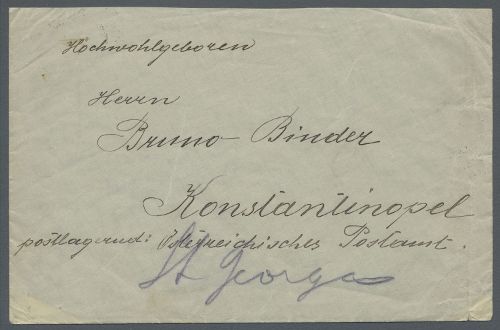 Hochwohlgeboren
Herrn
Bruno Binder
Konstantinopel
postlagernd: Österreichisches Postamt.
St Georgs